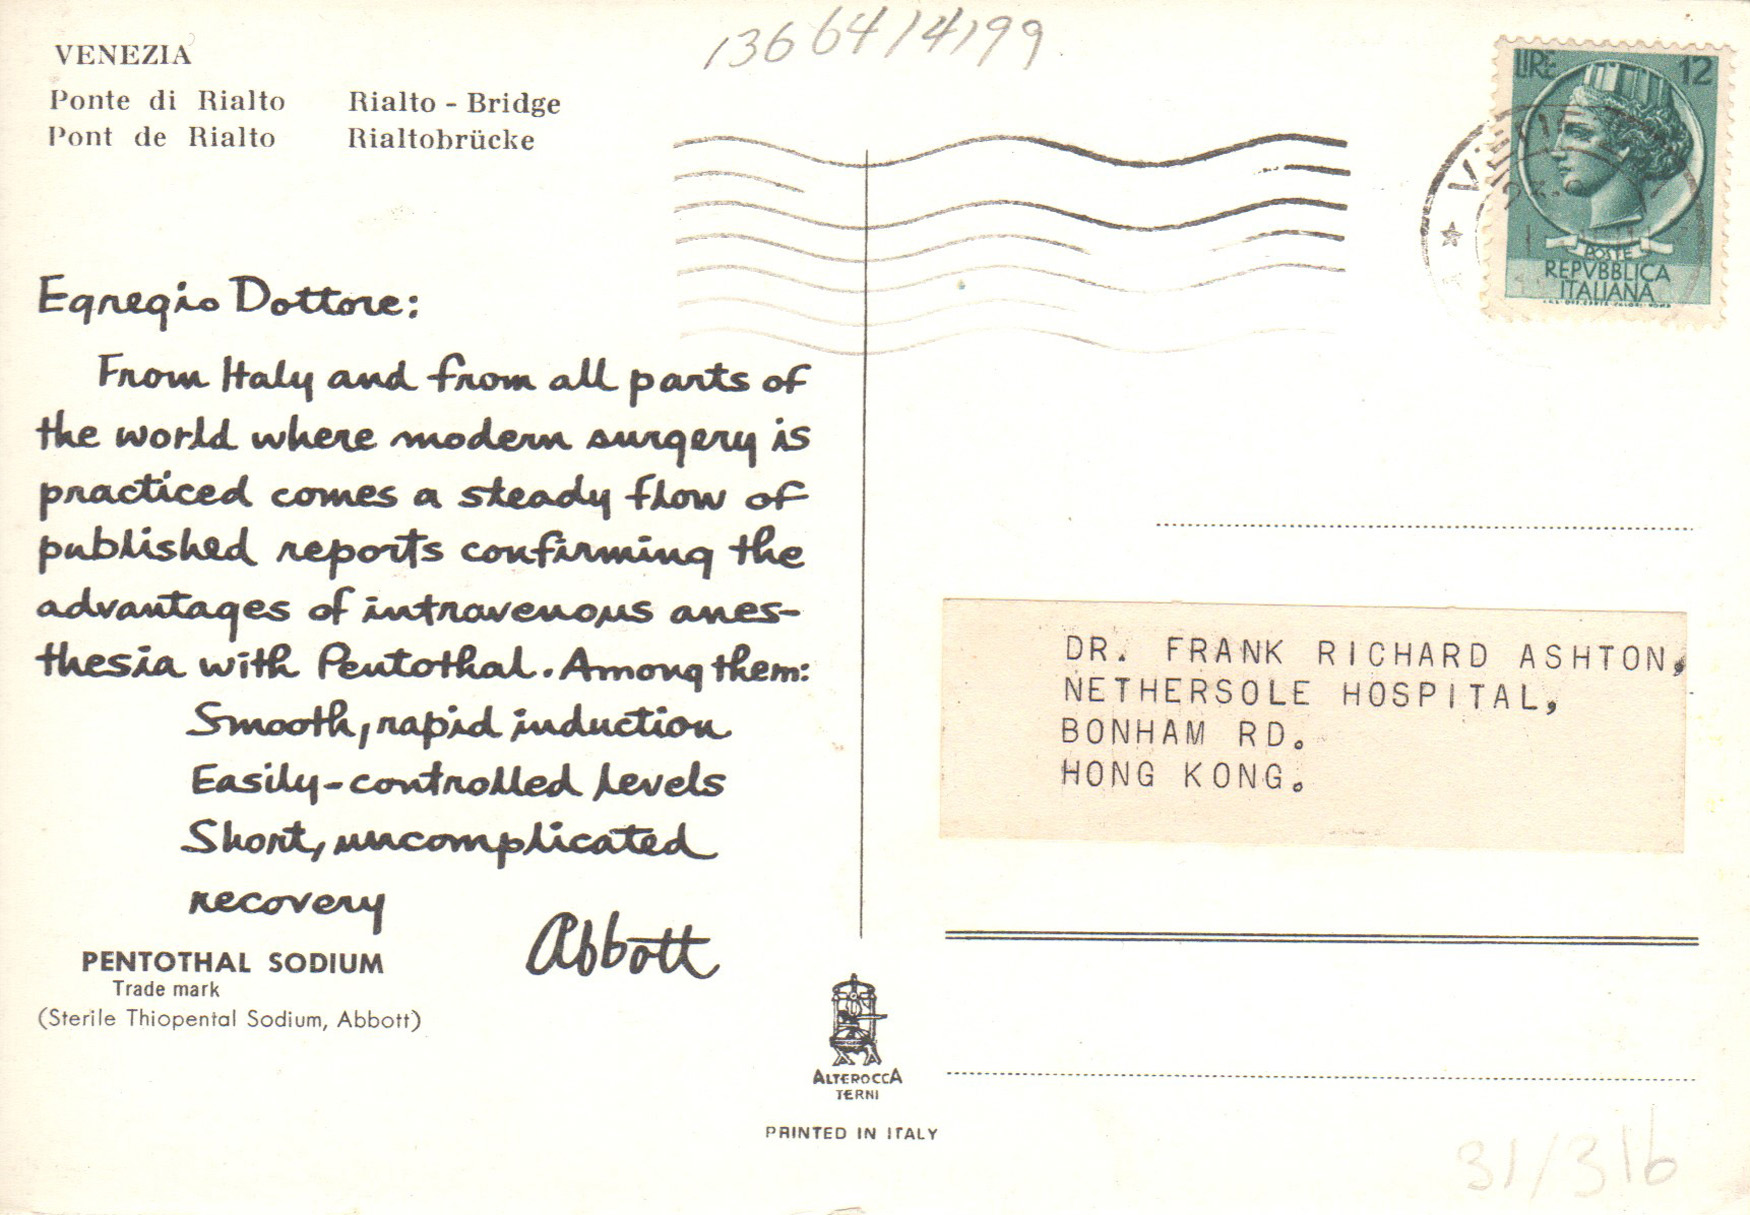 13664/4/99
VENEZIA
Ponte di Rialto Rialto - Bridge
Pont de Rialto Rialtobrücke
LIRE 12
POSTE
REPVBBLICA
ITALIANA
Egregio Dottore:
From Italy and from all parts of
the world where modern surgery is
practiced comes a steady flow of
published reports confirming the
advantages of intravenous anes-
thesia with Pentothal. Among them:
Smooth, rapid induction
Easily-controlled levels
Short, uncomplicated
recovery
Abbott
PENTOTHAL SODIUM
Trade mark
(Sterile Thiopental Sodium, Abbott)
DR. FRANK RICHARD ASHTON,
NETHERSOLE HOSPITAL,
BONHAM RD.
HONG KONG.
ALTEROCCA
TERNI
PRINTED IN ITALY
31/316